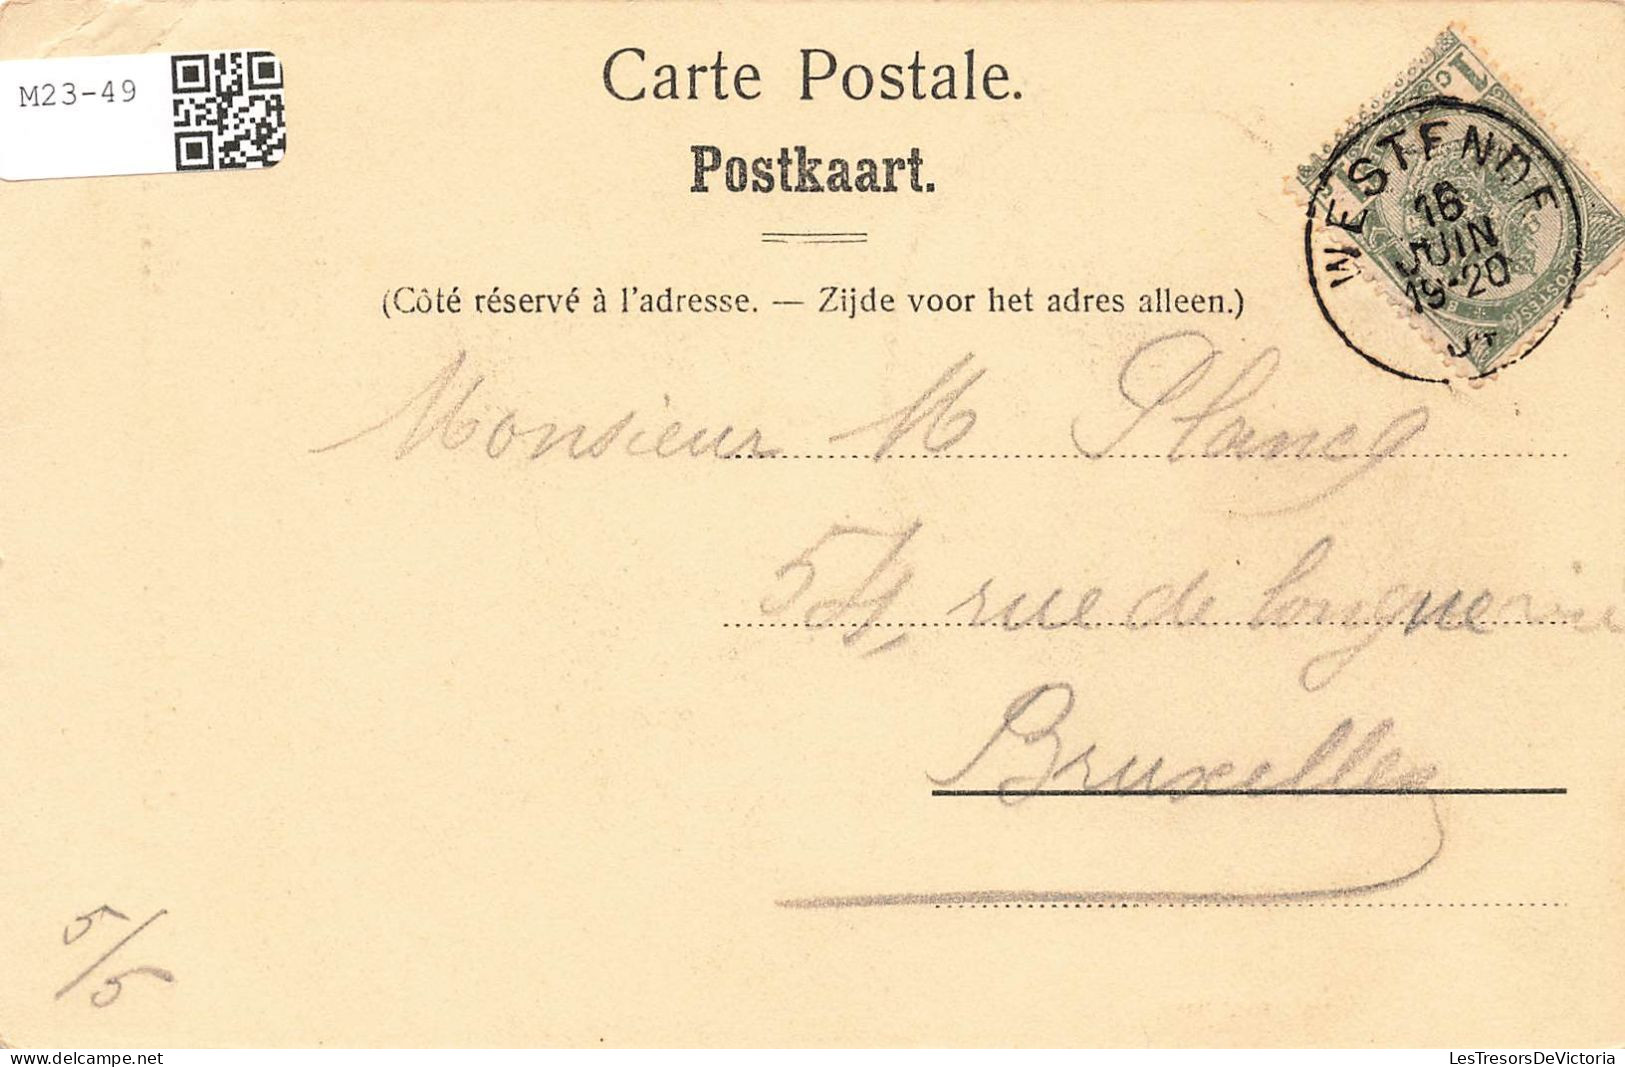 M23-49
Carte Postale.
Postkaart.
(Côté réservé à l'adresse. — Zijde voor het adres alleen.)
WESTENDE
16
JUIN
19-20
Monsieur M Plancq
54, rue de Longue
Bruxelles
5/5
LesTresorsDeVictoria